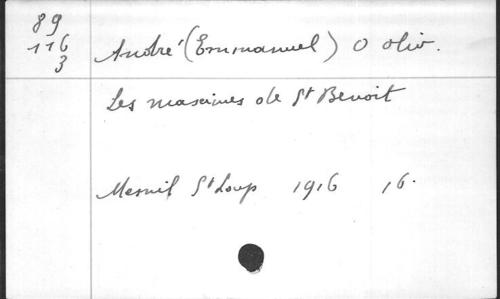 89
116
3
André (Emmanuel) O oliv.
Les maximes de St Benoit
Mesnil St Loup 1916 16.